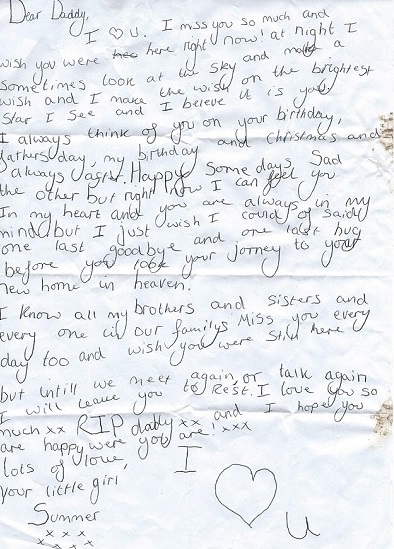 Dear Daddy,
I ♡ U. I miss you so much and
wish you were here right now! at night I
sometimes look at the sky and make a
wish and I make the wish on the brightest
star I see and I beleve it is you
I always think of you on your birthday,
fathers day, my birthday and Christmas and
always Happy some days Sad
the other but right now I can feel you
In my heart and you are always in my
mind but I just wish I could of said
one last goodbye and one last hug
before you took your jorney to your
new home in heaven.
I know all my brothers and sisters and
every one in our familys Miss you every
day too and wish you were still here
but intill we meet again, or talk again
I will leave you to Rest. I love you so
much xx RIP daddy xx and I hope you
are happy were you are! xxx
lots of love, I
your little girl ♡
Summer U
x x x x
x x x x